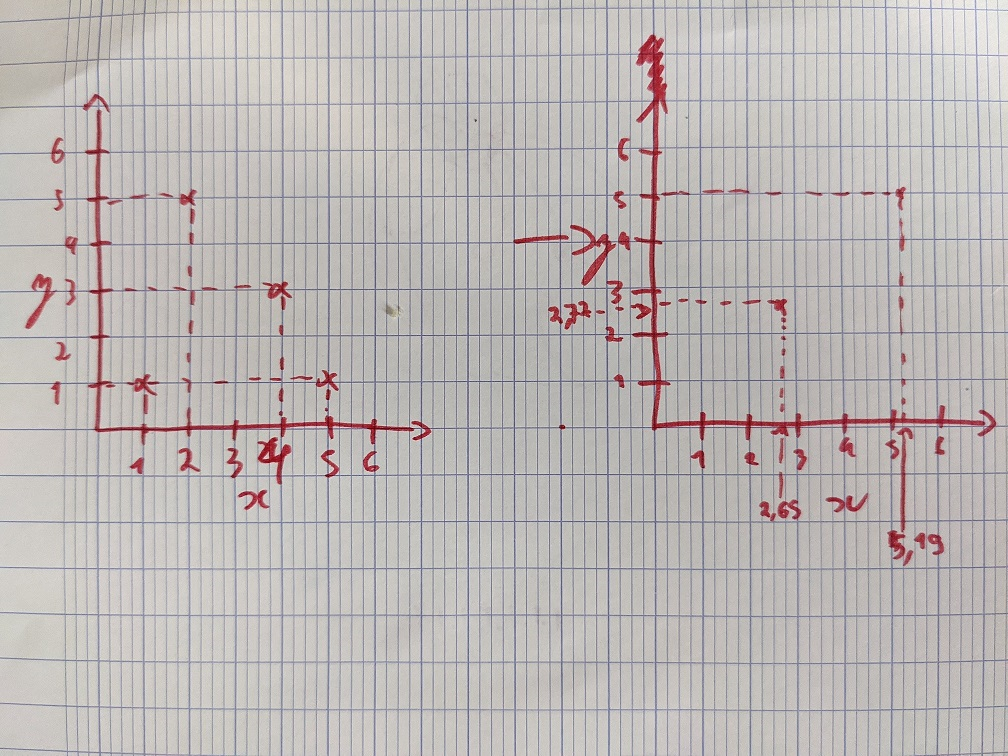 6
5
4
y 3
2
1
1 2 3 4 5 6
x
6
5
y 4
3
2,77
2
1
1 2 3 4 5 6
2,65 x
5,19